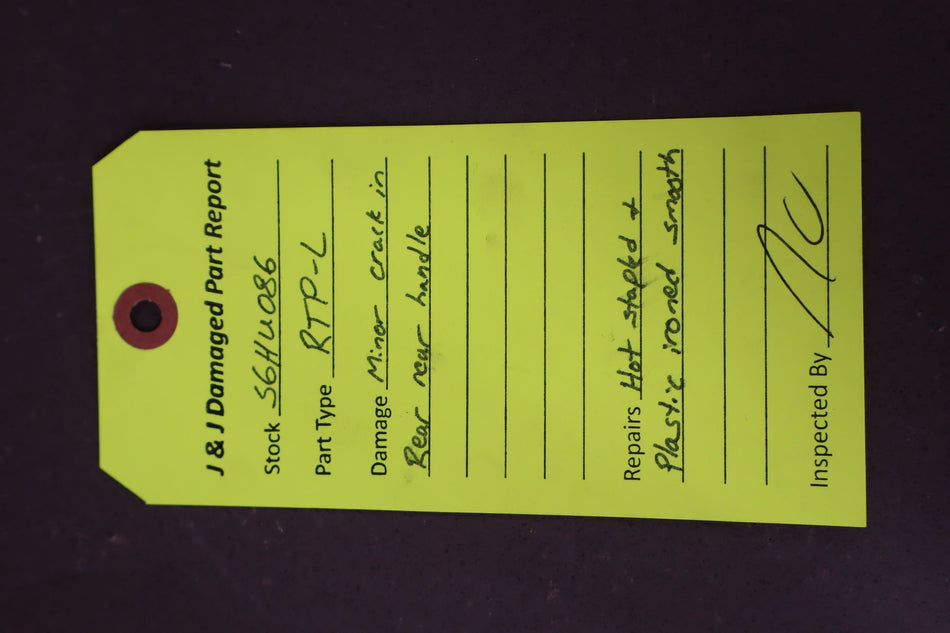 J & J Damaged Part Report
Stock S6HU086
Part Type RTP-L
Damage Minor crack in
Rear near handle
Repairs Hot stapled +
Plastic ironed smooth
Inspected By